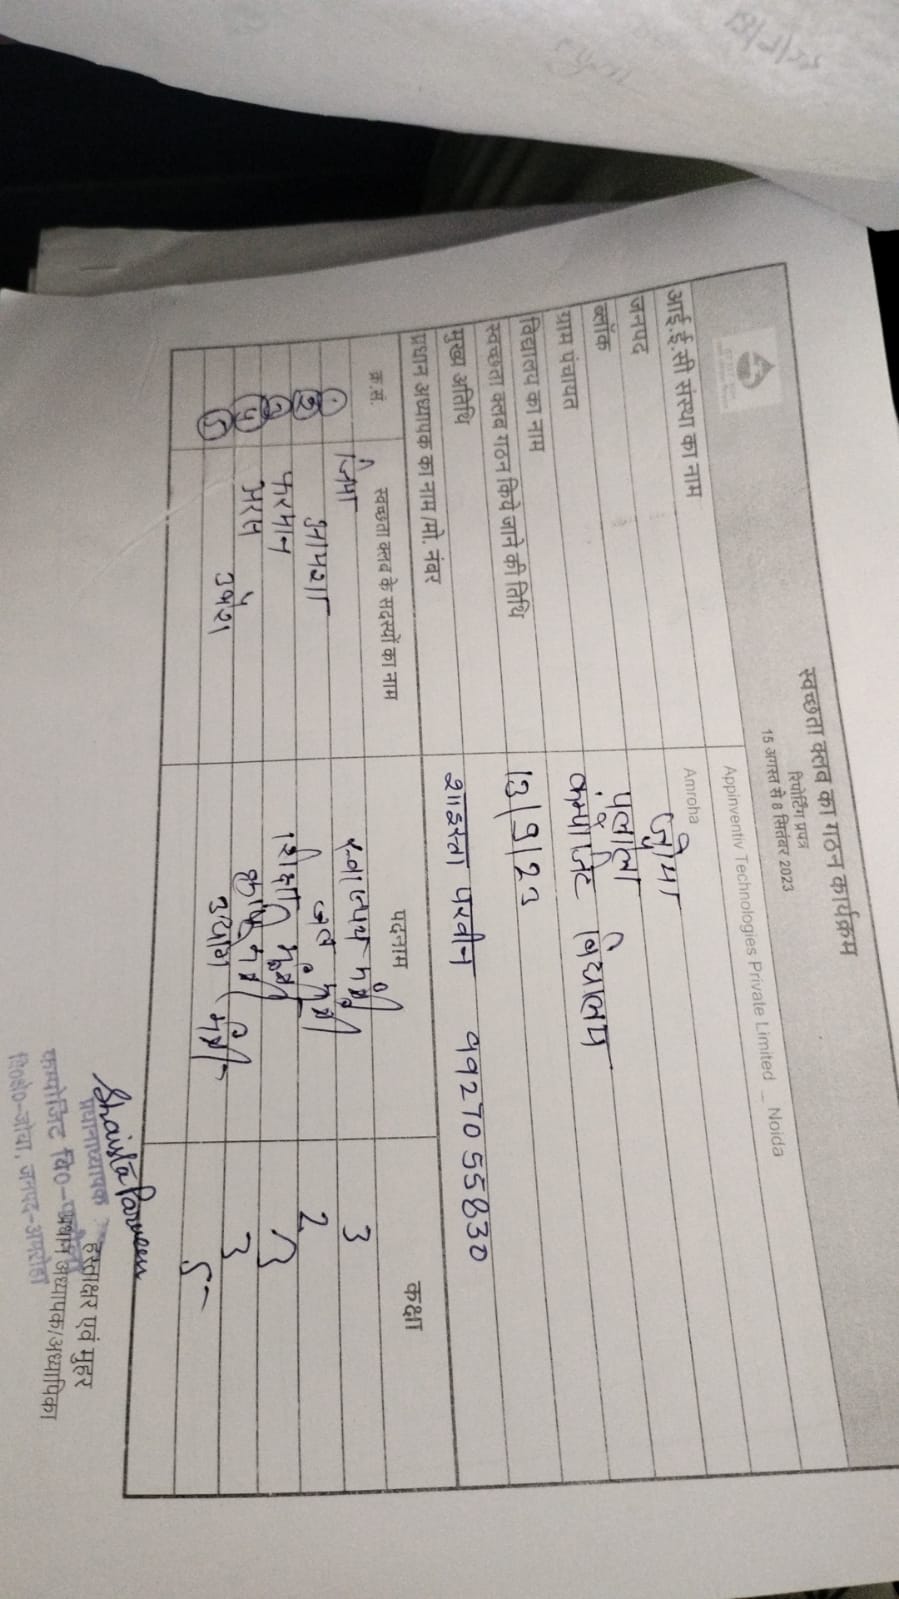 स्वच्छता क्लब का गठन कार्यक्रम
रिपोर्टिंग प्रपत्र
15 अगस्त से 8 सितंबर 2023
आई.ई.सी संस्था का नाम Appinventiv Technologies Private Limited _ Noida
जनपद Amroha
ब्लॉक जोया
ग्राम पंचायत
विद्यालय का नाम कम्पोजिट विद्यालय
स्वच्छता क्लब गठन किये जाने की तिथि 13/9/23
मुख्य अतिथि
प्रधान अध्यापक का नाम/मो. नंबर शाइस्ता परवीन 9927055830
क्र.सं. स्वच्छता क्लब के सदस्यों का नाम पदनाम कक्षा
1 स्वास्थ्य मंत्री 3
2 जल मंत्री 2
3 फरमान शिक्षा मंत्री 3
4 कृषि मंत्री 3
5 उद्योग मंत्री 5
Shaista Parveen
प्रधानाध्यापक हस्ताक्षर एवं मुहर
कम्पोजिट वि०- प्रधान अध्यापक/अध्यापिका
वि०क्षे०-जोया, जनपद-अमरोहा